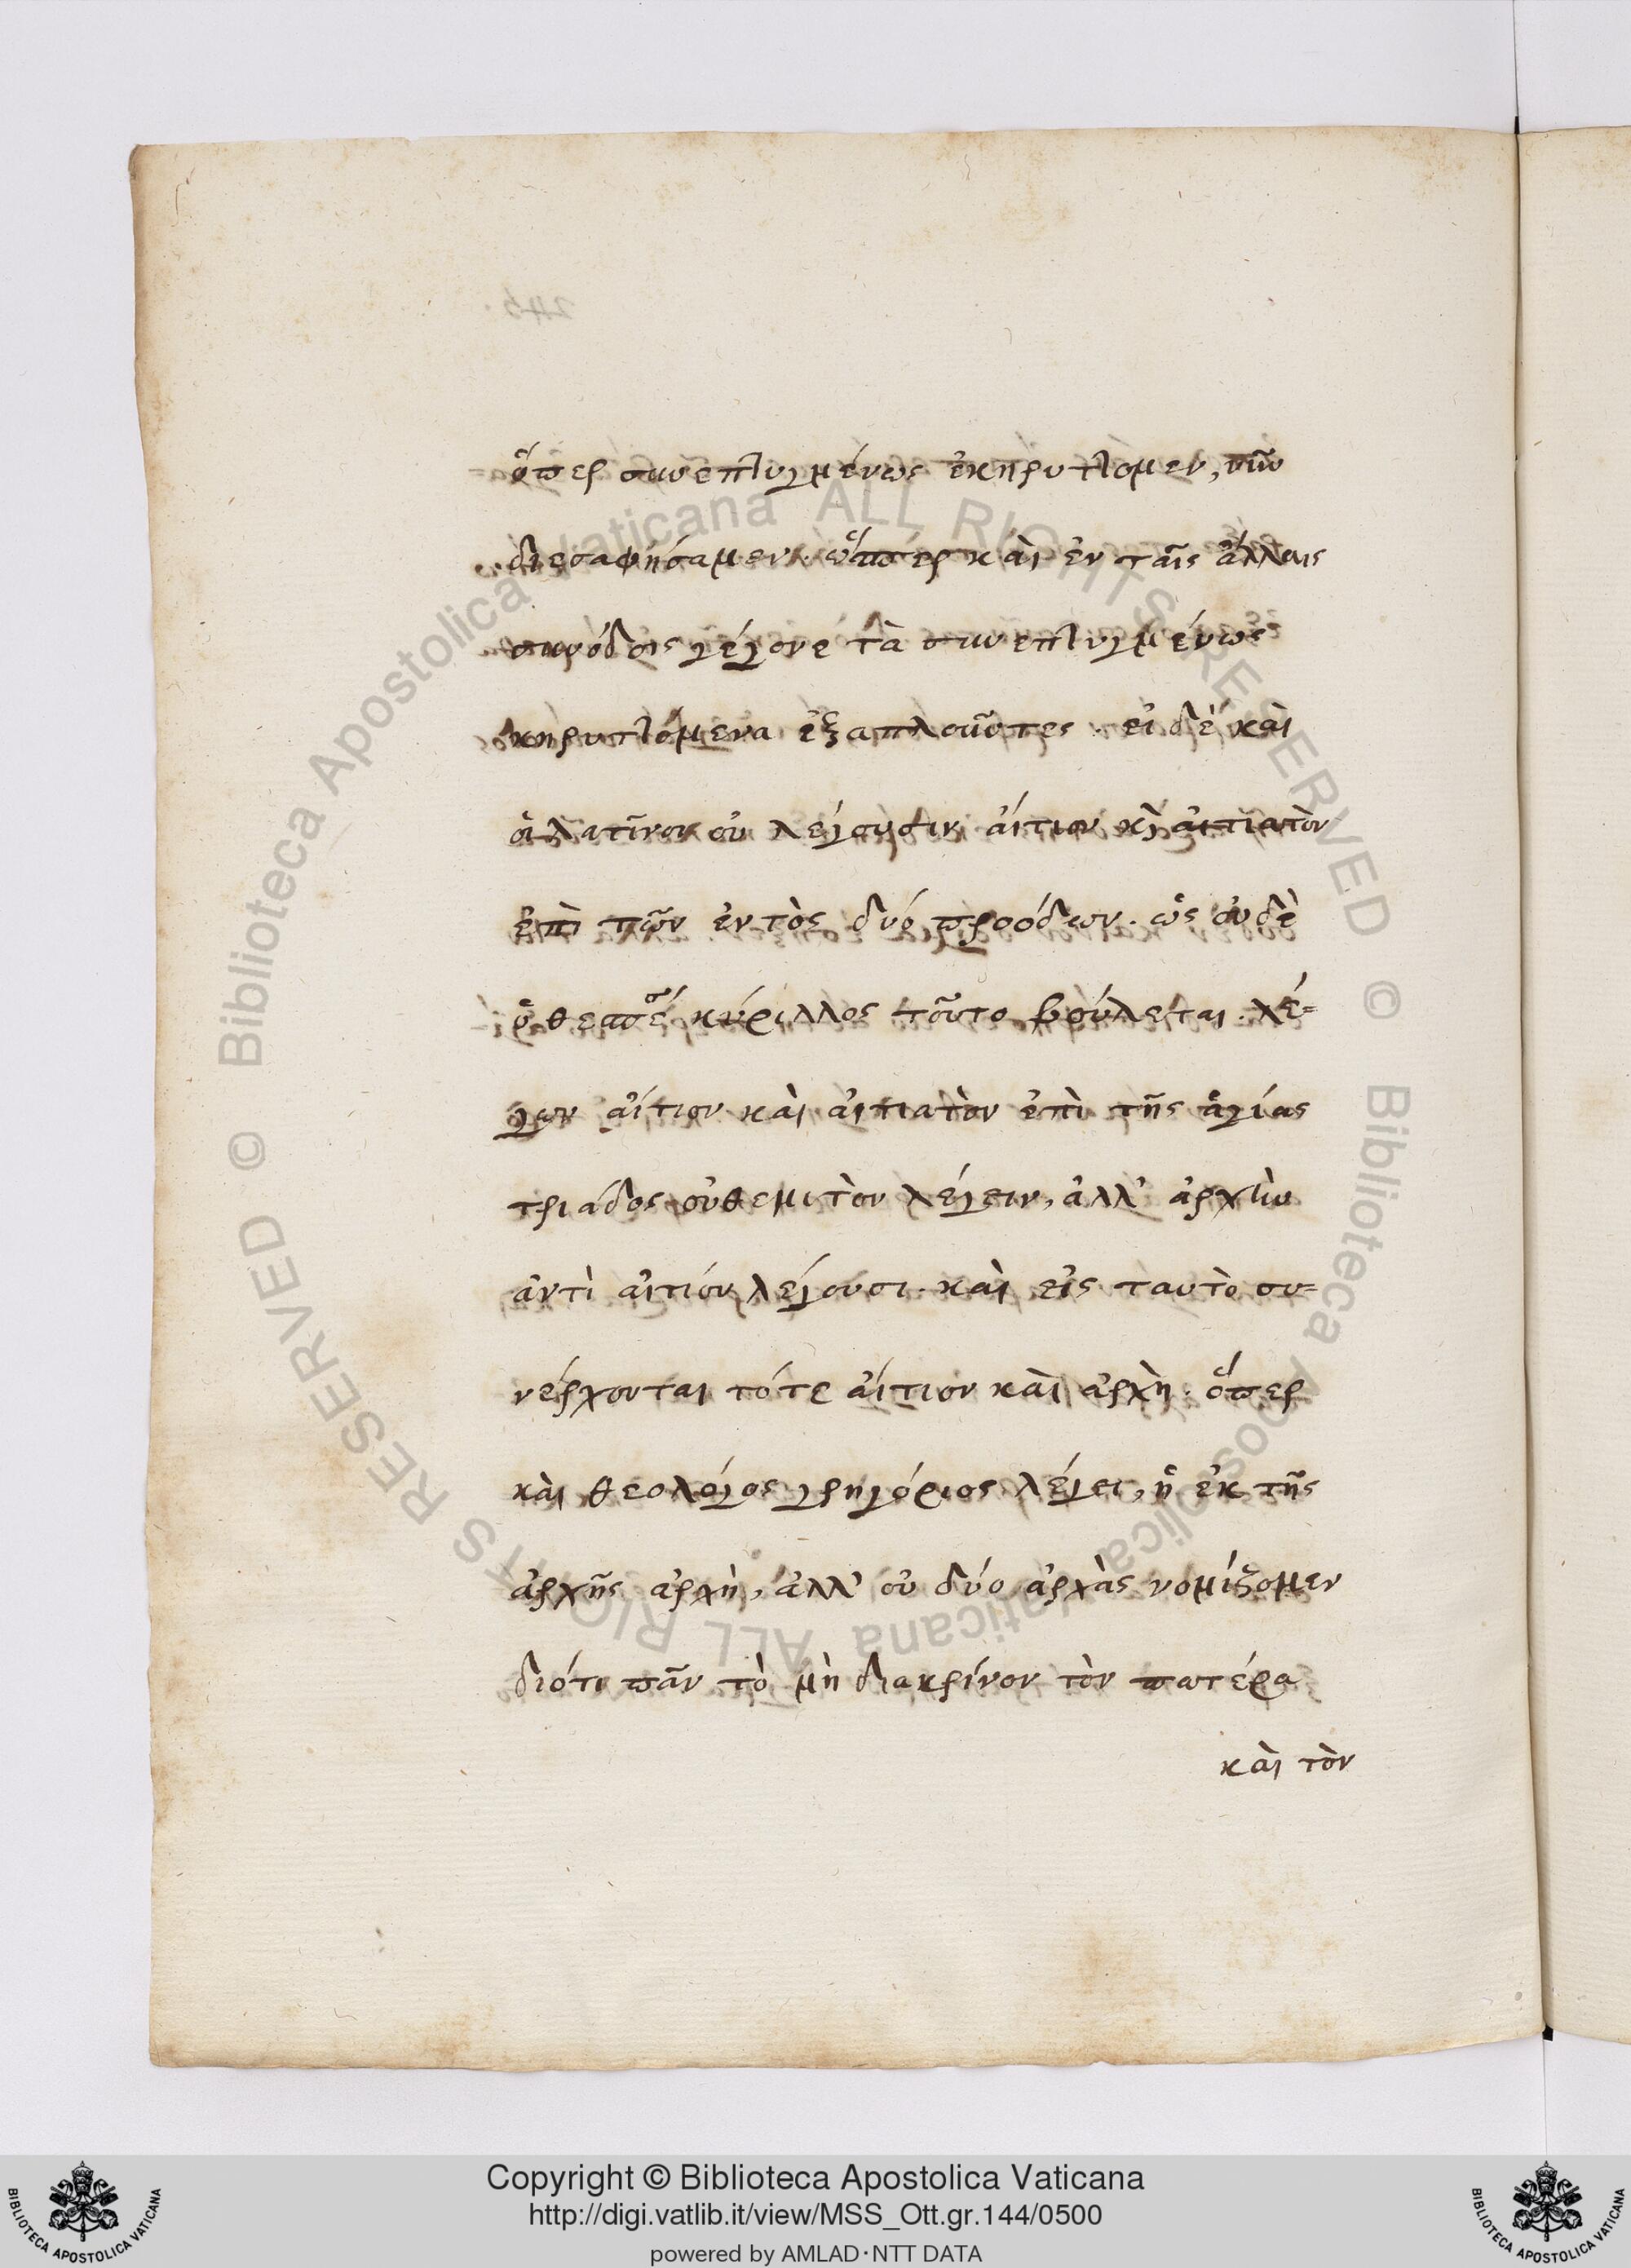 ὅπερ συνεπτυγμένως ἐκηρυττομεν, νῦν
διεσαφήσαμεν. ὥσπερ καὶ ἐν ταῖς ἄλλαις
συνόδοις γέγονε τὰ συνεπτυγμένως
κηρυττόμενα ἐξαπλοῦντες. εἰ δὲ καὶ
οἱ λατῖνοι οὐ λέγουσιν αἴτιον κὶ αἰτιατὸν
ἐπὶ τῶν ἐντὸς δύο προόδων. ὡς οὐδὲ
ὁ κύριλλος τοῦτο βούλεται. λέ=
γων αἴτιον καὶ αἰτιατὸν ἐπὶ τῆς ἁγίας
τριάδος οὐθεμιτὸν λέγειν, ἀλλ' ἀρχὴν
ἀντὶ αἰτιόν λέγουσι. καὶ εἰς ταυτὸ συ=
νέρχονται τότε αἴτιον καὶ ἀρχὴ. ὅπερ
καὶ θεολόγος γρηγόριος λέγει, ἡ ἐκ τῆς
ἀρχῆς ἀρχὴ, ἀλλ' οὐ δύο ἀρχὰς νομίζομεν
διότι πᾶν τὸ μὴ διακρίνον τὸν πατέρα
καὶ τὸν
Copyright © Biblioteca Apostolica Vaticana
http://digi.vatlib.it/view/MSS_Ott.gr.144/0500
powered by AMLAD·NTT DATA
© Biblioteca Apostolica Vaticana ALL RIGHTS RESERVED
© Biblioteca Apostolica Vaticana ALL RIGHTS RESERVED
BIBLIOTECA APOSTOLICA VATICANA
BIBLIOTECA APOSTOLICA VATICANA